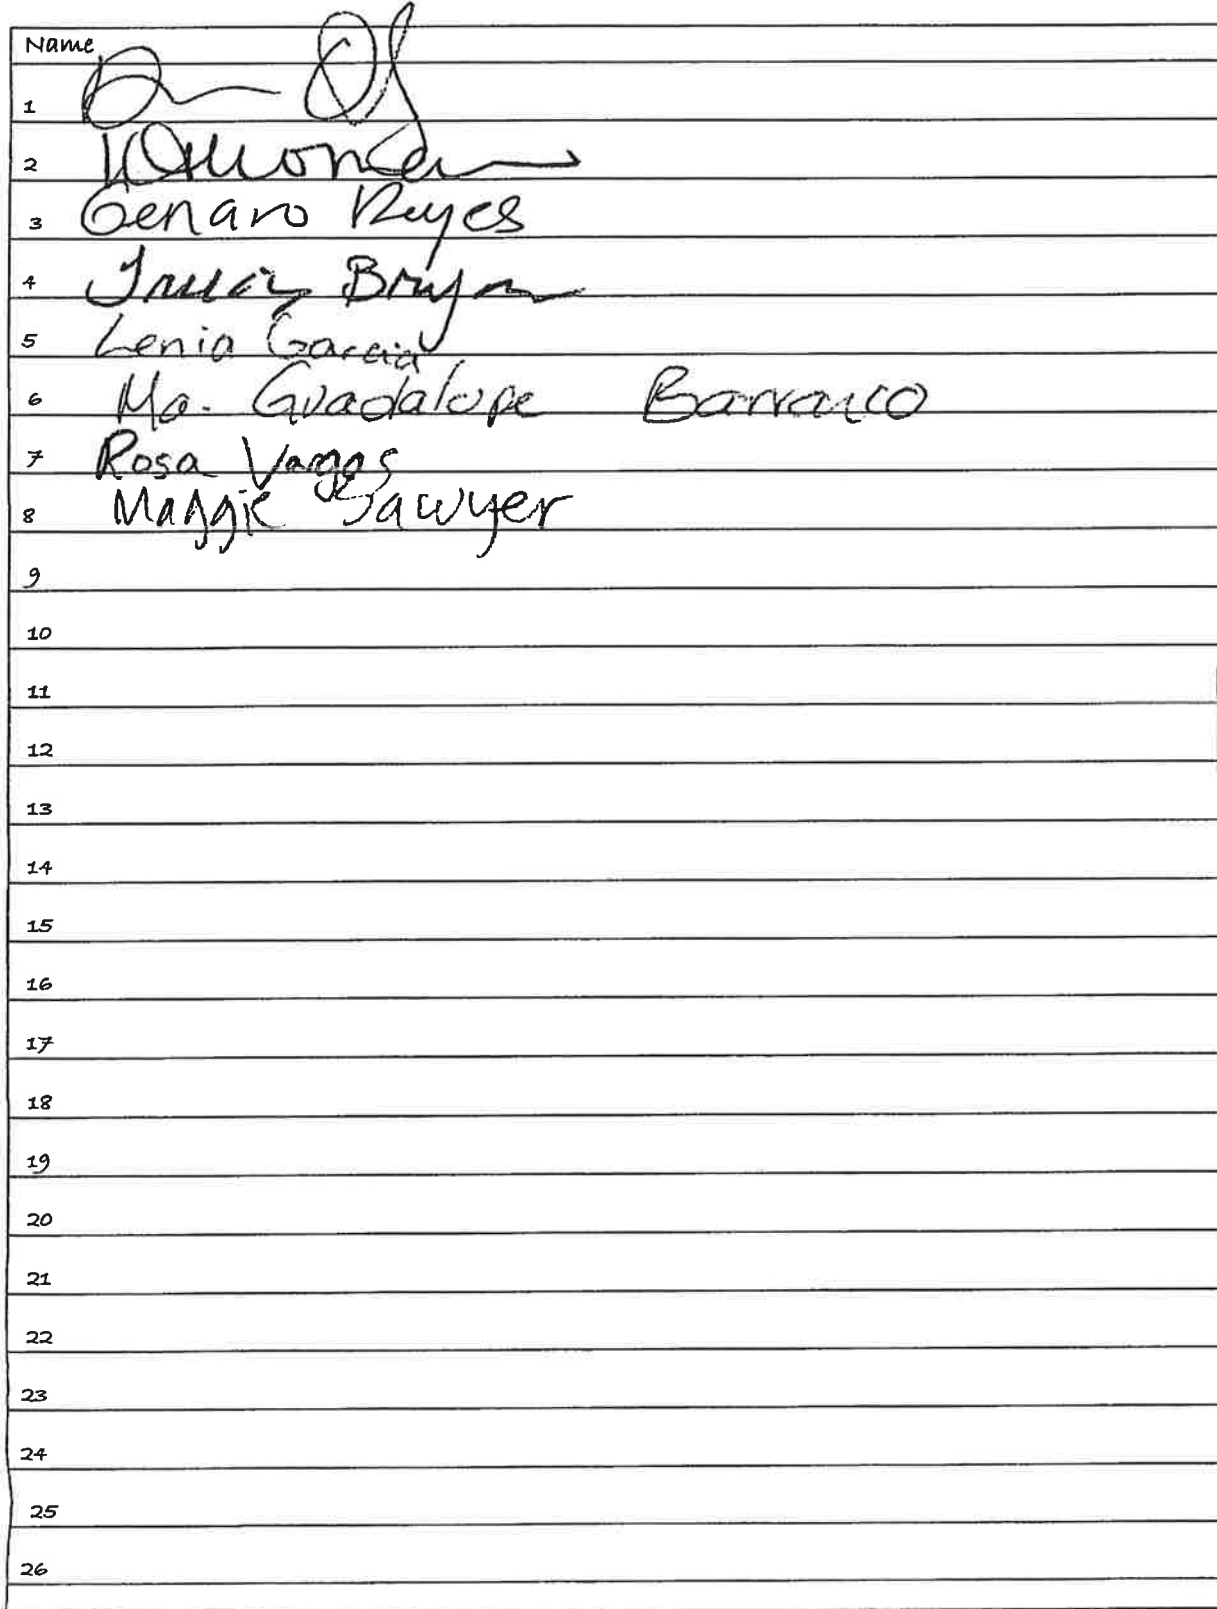 Name
1
2
3 Genaro Reyes
4 Bryan
5 Lenia Garcia
6 Ma. Guadalupe Barranco
7 Rosa Vargas
8 Maggie Sawyer
9
10
11
12
13
14
15
16
17
18
19
20
21
22
23
24
25
26